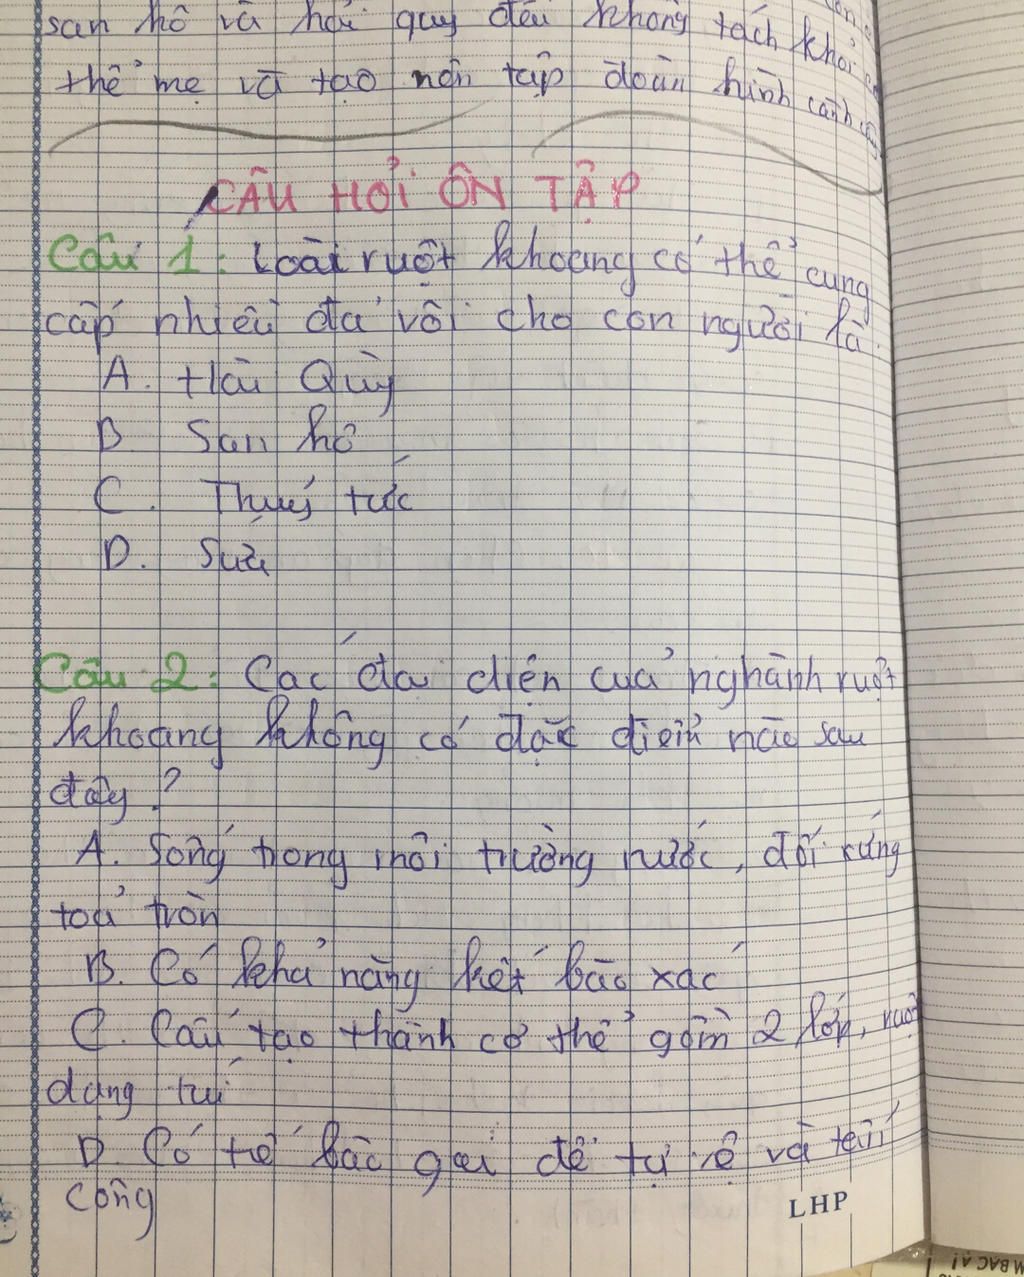 san hô và hải quỳ đều không tách khỏi
thể mẹ và tạo nên tập đoàn hình cành
CÂU HỎI ÔN TẬP
Câu 1: Loài ruột khoang có thể cung
cấp nhiều đá vôi cho con người là
A. Hải Quỳ
B San hô
C. Thuỷ tức
D. Sứa
Câu 2: Các đại diện của nghành ruột
khoang không có đặc điểm nào sau
đây ?
A. Sống trong môi trường nước, đối xứng
toả tròn
B. Có khả năng kết bào xác
C. Cấu tạo thành cơ thể gồm 2 lớp, ruột
dạng túi
D. Có tế bào gai để tự vệ và tấn
công
LHP